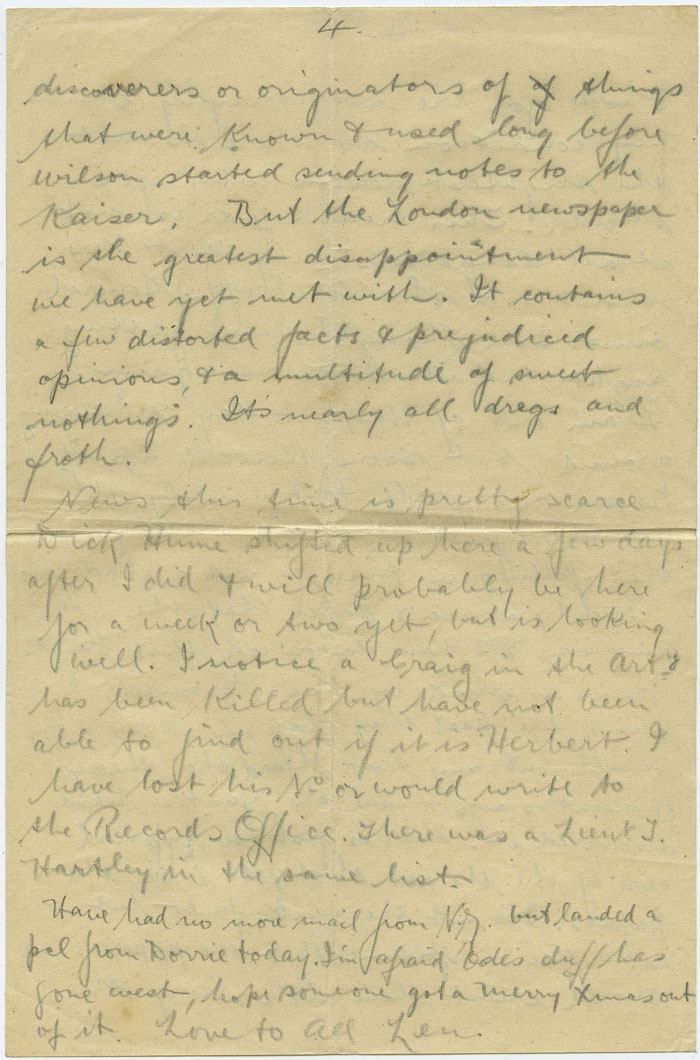 4.
discoverers or originators of things
that were known & used long before
Wilson started sending notes to the
Kaiser. But the London newspaper
is the greatest disappointment
we have yet met with. It contains
a few distorted facts & prejudiced
opinions, & a multitude of sweet
nothings. Its nearly all dregs and
froth.
News this time is pretty scarce
Dick Hume shifted up here a few days
after I did & will probably be here
for a week or two yet, but is looking
well. I notice a Craig in the Arty
has been killed but have not been
able to find out if it is Herbert. I
have lost his No or would write to
the Records Office. There was a Lieut J.
Hartley in the same list.
Have had no more mail from N.Z. but landed a
pcl from Dorrie today. I'm afraid duff has
gone west, hope someone got a merry Xmas out
of it. Love to all Len.